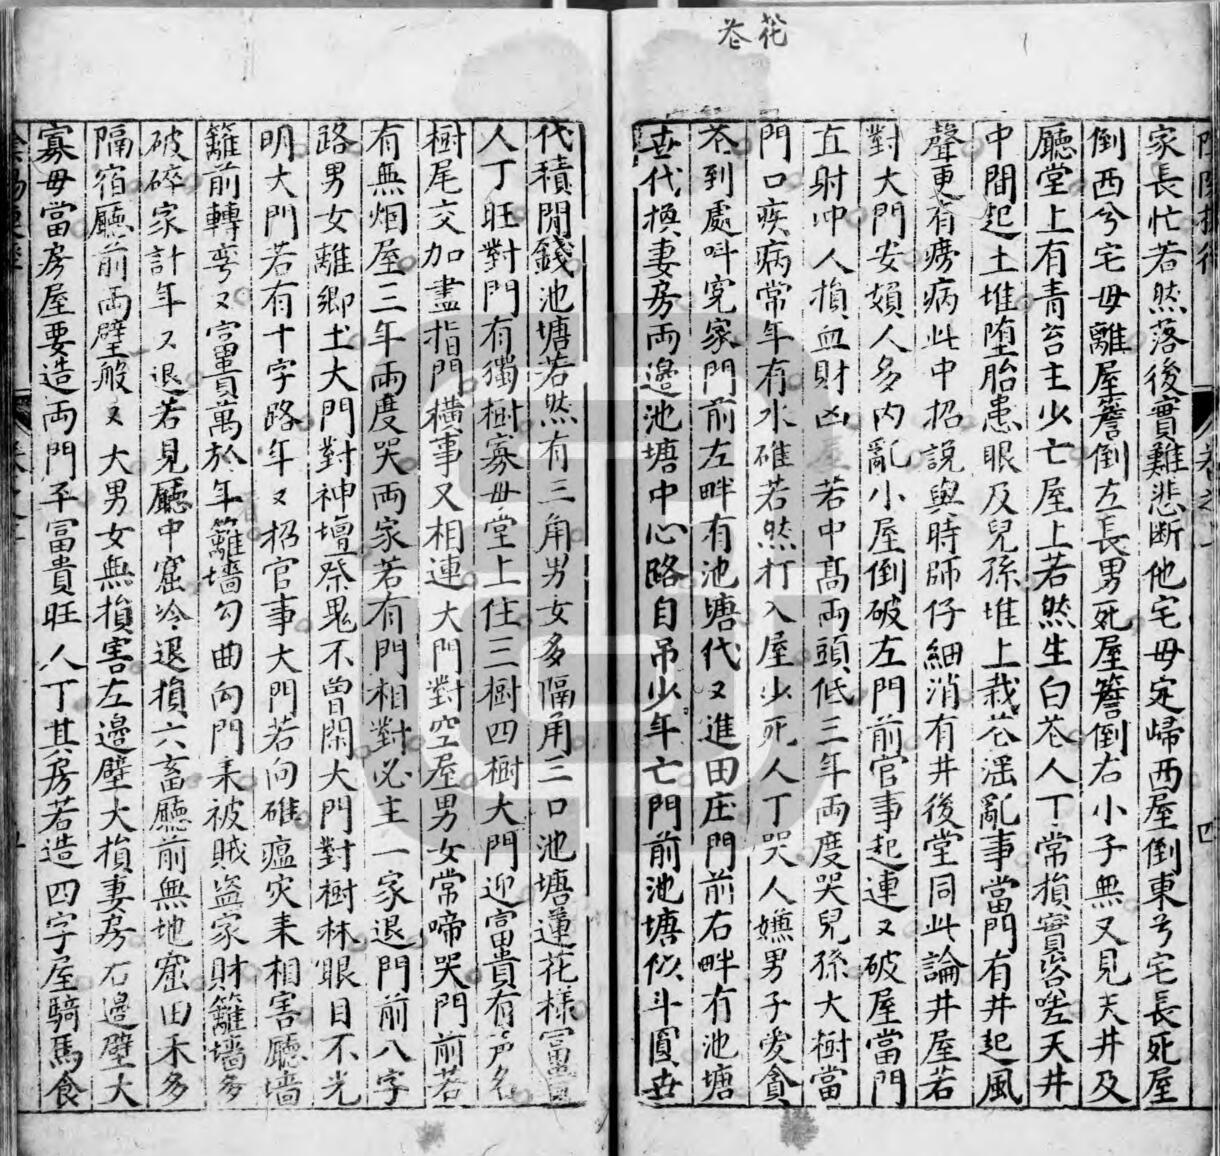 花
苍
家長忙若然落後實難悲断他宅母定歸西屋倒東兮宅長死屋
倒西兮宅母離屋簷倒左長男死屋簷倒右小子無又見天井及
廳堂上有青苔主少亡屋上若然生白苍人丁常損實咨嗟天井
中間起土堆堕胎患眼及兒孫堆上栽苍滛亂事當門有井起風
聲更有癆病此中招說與時師仔細消有井後堂同此論井屋若
對大門安媍人多内亂小屋倒破左門前官事起連又破屋當門
直射冲人損血財凶屋若中髙両頭低三年両度哭兒孫大樹當
門口疾病常年有水碓若然打入屋少死人丁哭人嫌男子爱貪
苍到處呌寃家門前左畔有池塘代又進田庄門前右畔有池塘
世代換妻房両邉池塘中心路自吊少年亡門前池塘似斗圓世
代積閒錢池塘若然有三角男女多隔角三口池塘蓮花樣冨貴
人丁旺對門有獨樹寡母堂上住三樹四樹大門迎冨貴有声名
樹尾交加盡指門橫事又相連大門對空屋男女常啼哭門前若
有無烟屋三年両度哭両家若有門相對必主一家退門前八字
路男女離鄉土大門對神壇祭鬼不曽閑大門對樹林眼目不光
明大門若有十字路年又招官事大門若向碓瘟灾耒相害廳墻
籬前轉弯又冨貴萬於年籬墻勾曲向門耒被賊盗家財籬墻多
破碎家計年又退若見廳中窟冷退損六畜廳前無地窟田禾多
隔宿廳前両壁般又大男女無損害左邉壁大損妻房右邉壁大
寡母當房屋要造両門子冨貴旺人丁其房若造四字屋騎馬食